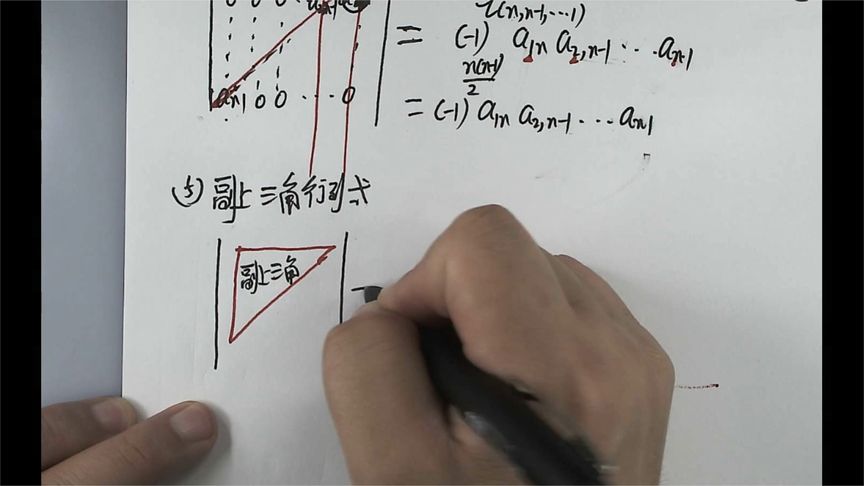 0 0 0
τ(n,n-1,…1)
= (-1) a₁ₙ a₂,ₙ₋₁ … aₙ₁
aₙ₁ 0 0 … 0
n(n-1)/2
= (-1) a₁ₙ a₂,ₙ₋₁ … aₙ₁
⑤ 副上三角行列式
副上三角